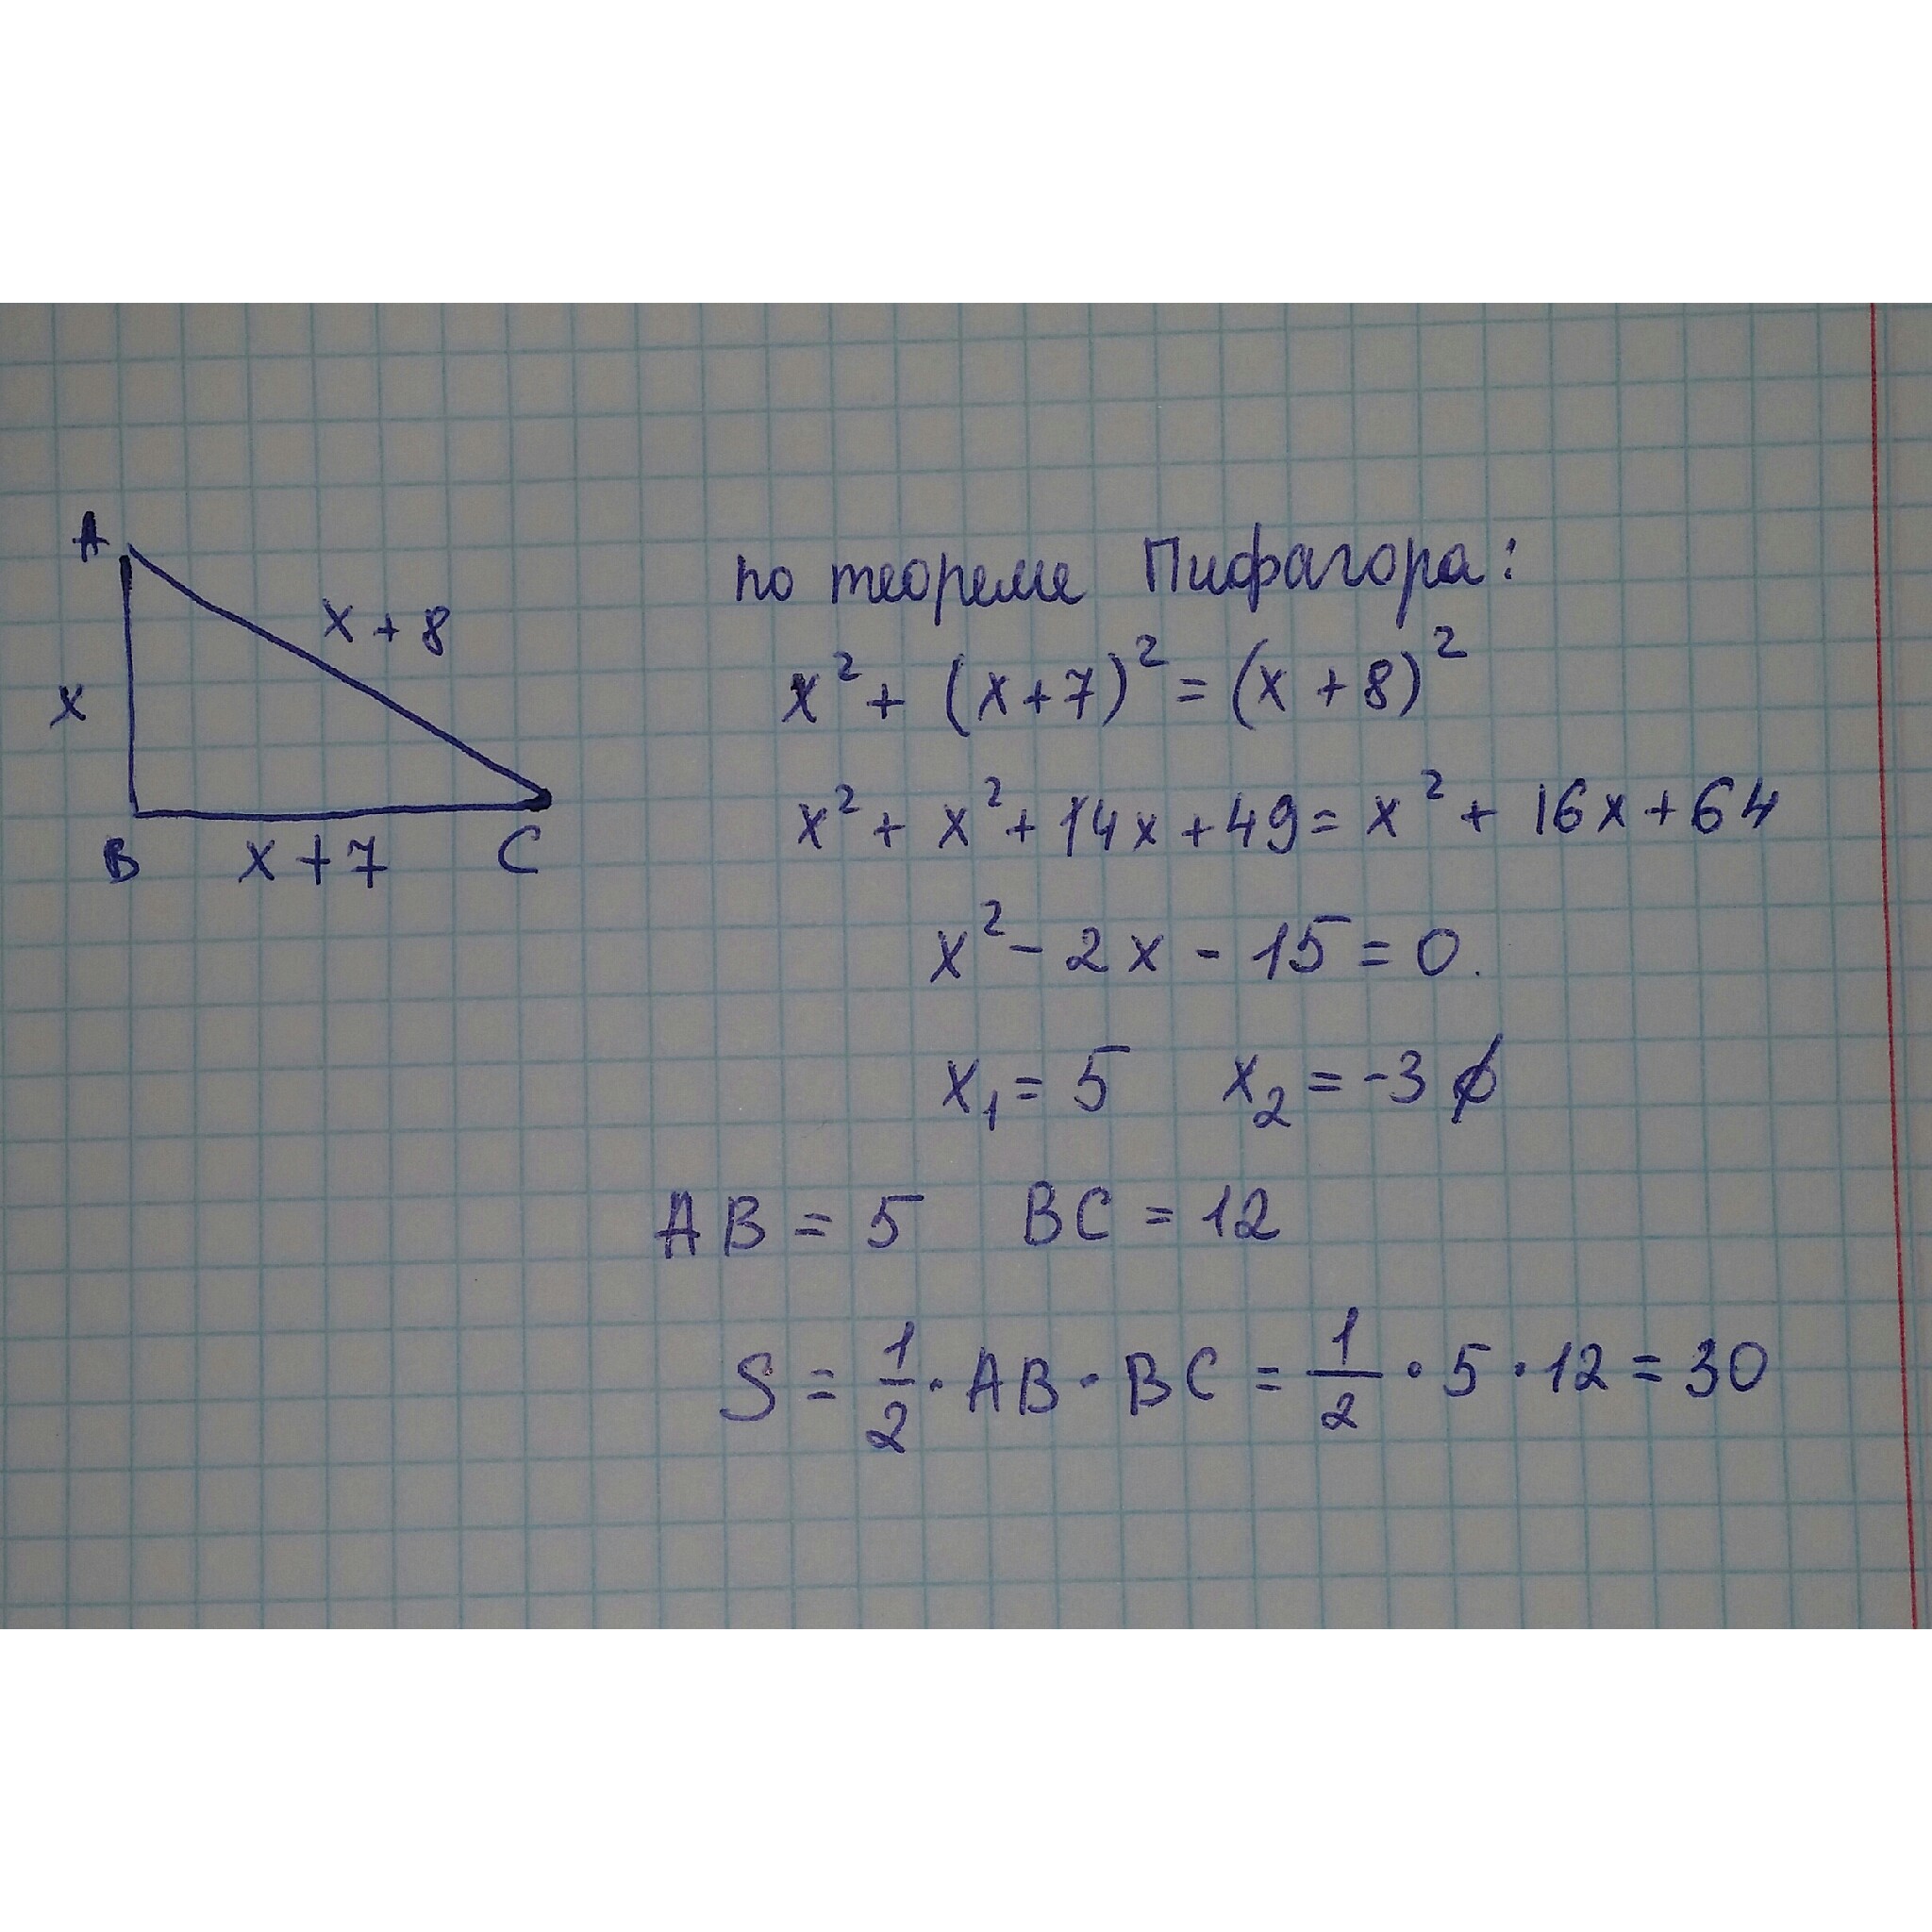 A
x + 8
x
B x + 7 C
по теореме Пифагора:
x² + (x + 7)² = (x + 8)²
x² + x² + 14x + 49 = x² + 16x + 64
x² - 2x - 15 = 0.
x₁ = 5 x₂ = -3 ∅
AB = 5 BC = 12
S = 1/2 · AB · BC = 1/2 · 5 · 12 = 30